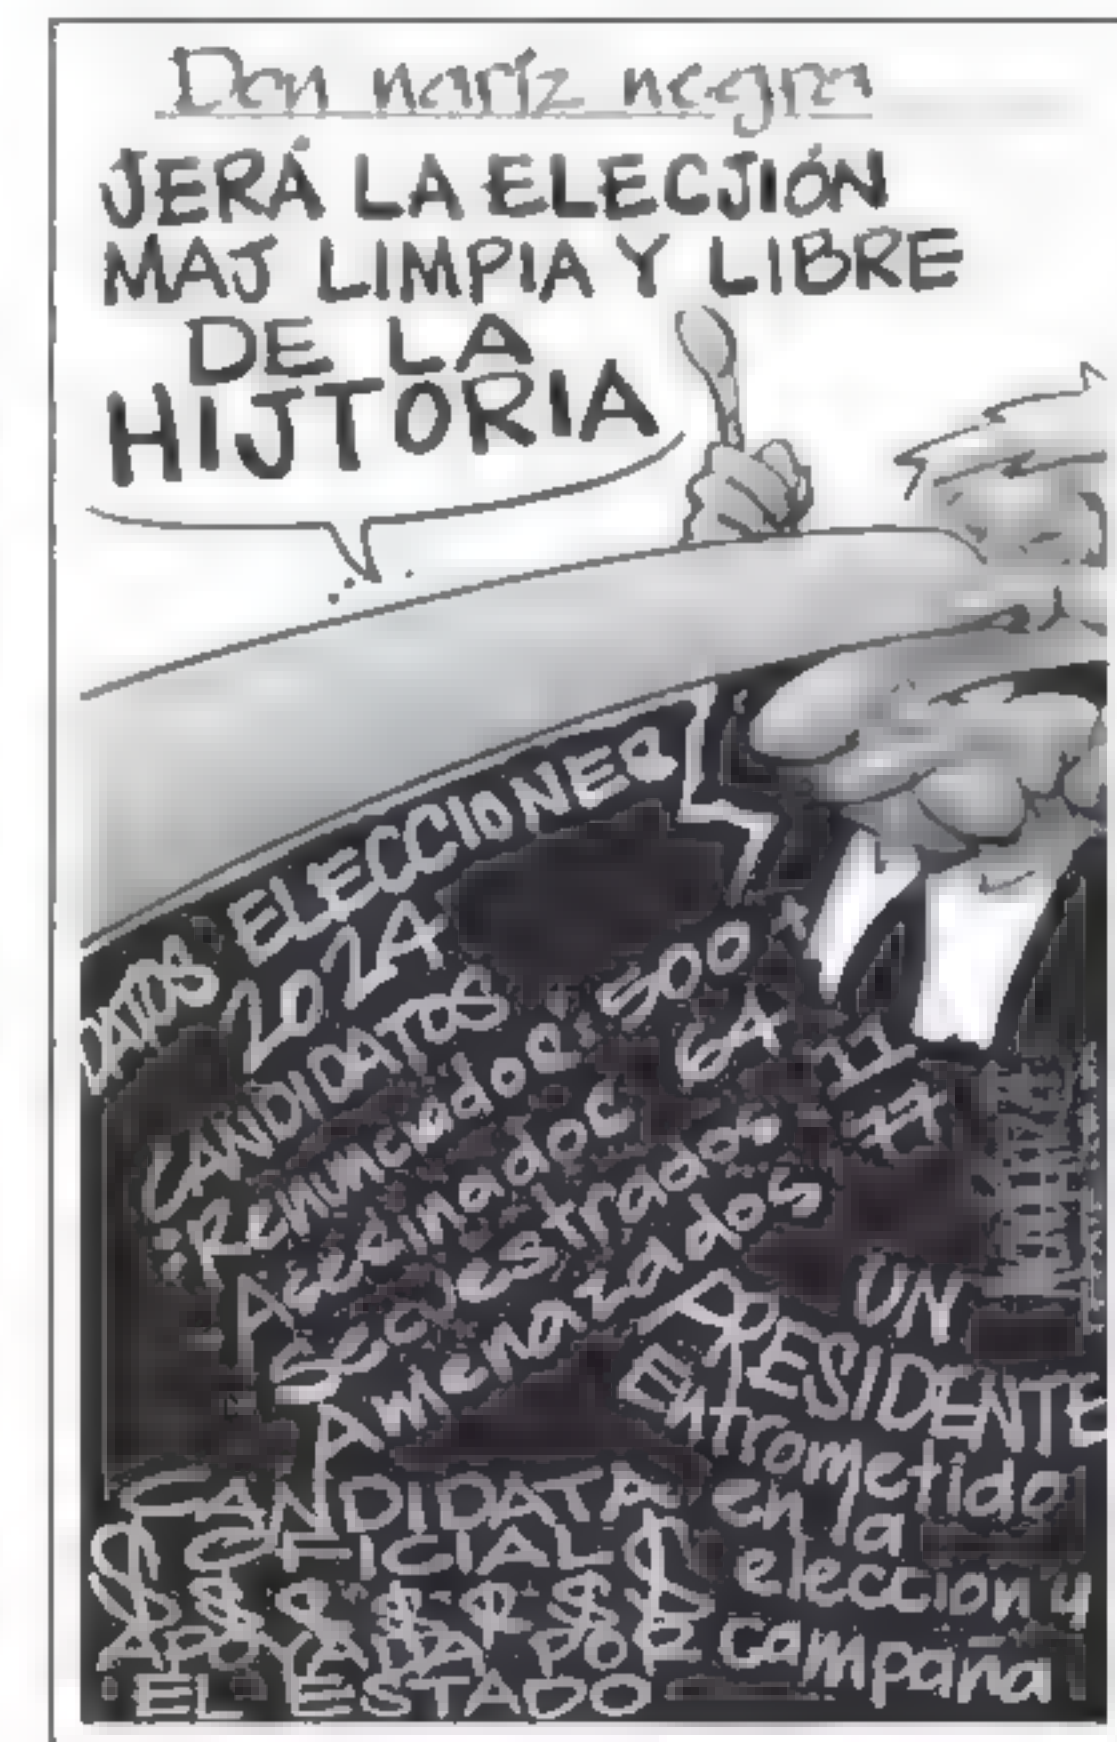 Don naríz negra
JERÁ LA ELECJIÓN
MAJ LIMPIA Y LIBRE
DE LA
HIJTORIA
DATOS ELECCIONES
2024
CANDIDATOS
Renunciados 500 +
Asesinados 64
Secuestrados 11
Amenazados 77
UN
PRESIDENTE
Entrometido
en la
eleccion y
campaña
CANDIDATA
OFICIAL
APOYADA POR
EL ESTADO